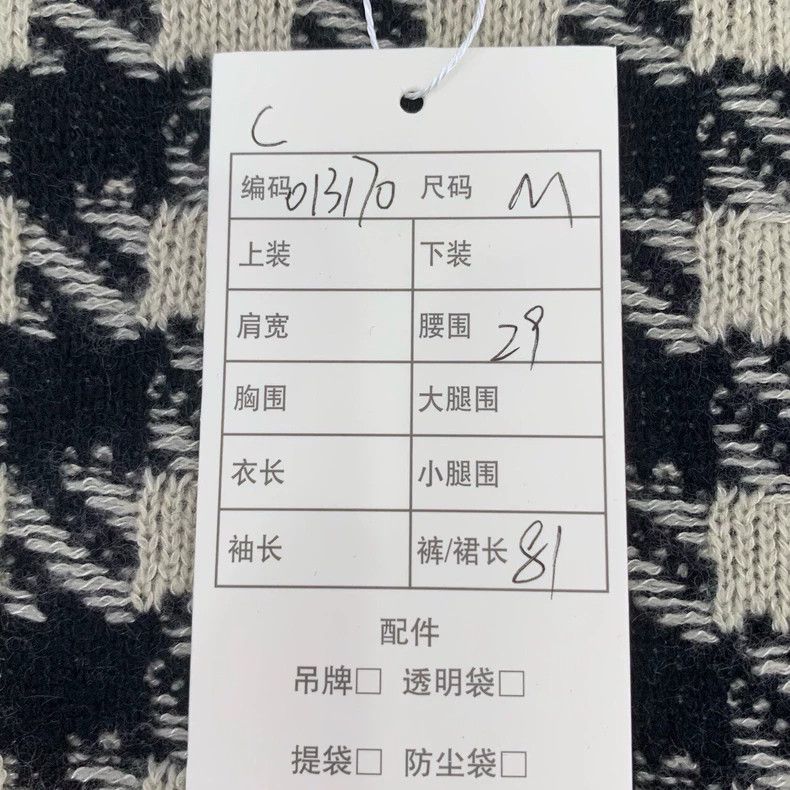 C
编码 013170 尺码 M
上装 下装
肩宽 腰围 29
胸围 大腿围
衣长 小腿围
袖长 裤/裙长 81
配件
吊牌□ 透明袋□
提袋□ 防尘袋□